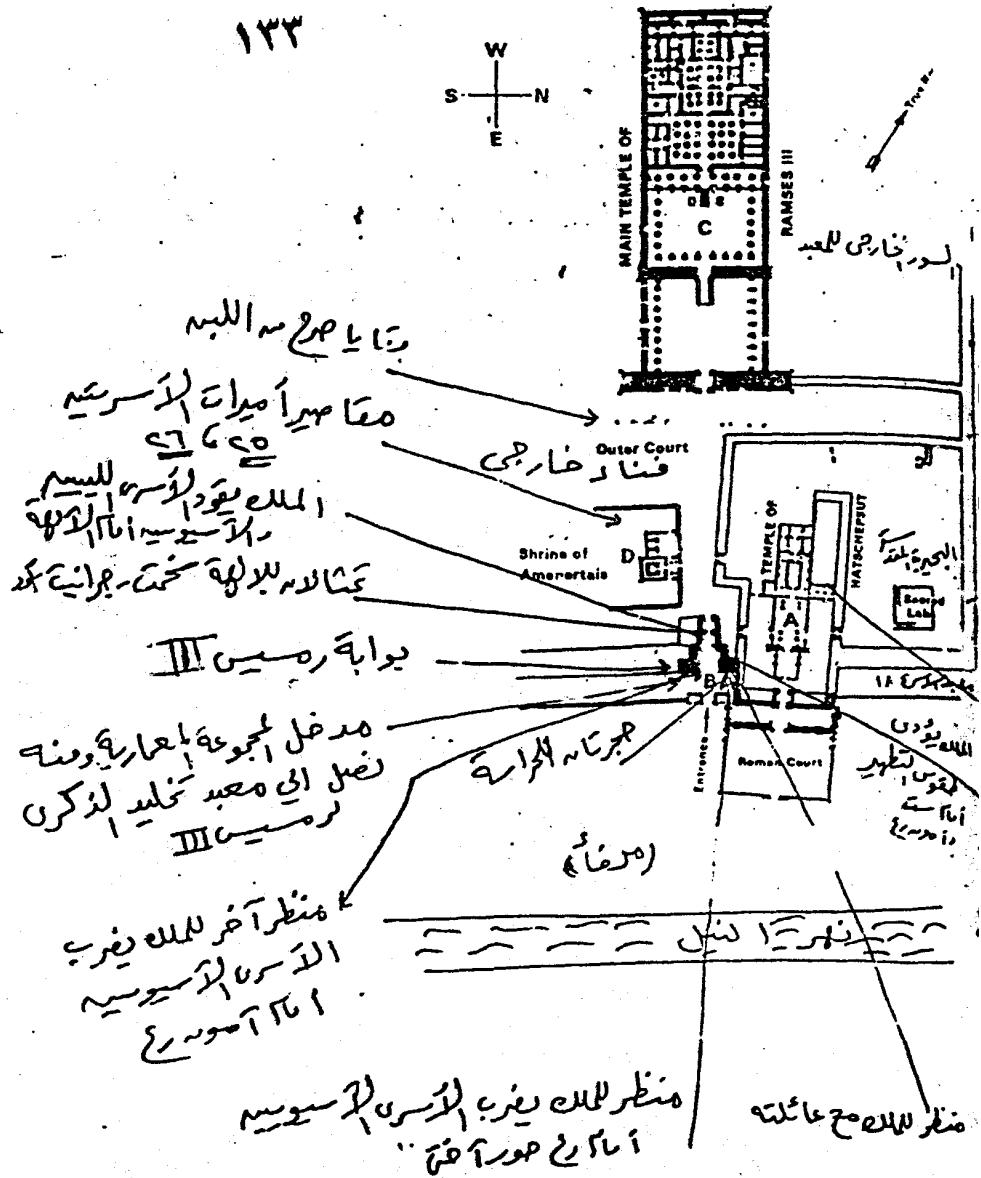 ١٣٣
W
S N
E
True N
MAIN TEMPLE OF
RAMSES III
C
السور الخارجى للمعبد
بقايا صرح من اللبن
مقاصير أميرات الأسرتين
٢٥ ، ٢٦
Outer Court
فناء خارجى
الملك يقود الأسرى الليبيين
والآسيويين أمام الآلهة
Shrine of
Amenertais
D
TEMPLE OF
HATSCHEPSUT
A
البحيرة المقدسة
Sacred
Lake
تمثالان للالهة سخمت جرانيت
بوابة رمسيس III
B
معبد الأسرة ١٨
مدخل المجموعة المعمارية ومنه
نصل الي معبد تخليد الذكرى
لرمسيس III
حجرتان للحراسة
Entrance
Roman Court
الملك يؤدى
طقوس التطهير
أمام ست
وآمون رع
(مرفأ)
نهر النيل
منظر آخر للملك يضرب
الأسرى الآسيويين
أمام آمون رع
منظر للملك يضرب الأسرى الآسيويين
أمام رع حور آختى
منظر للملك مع عائلته